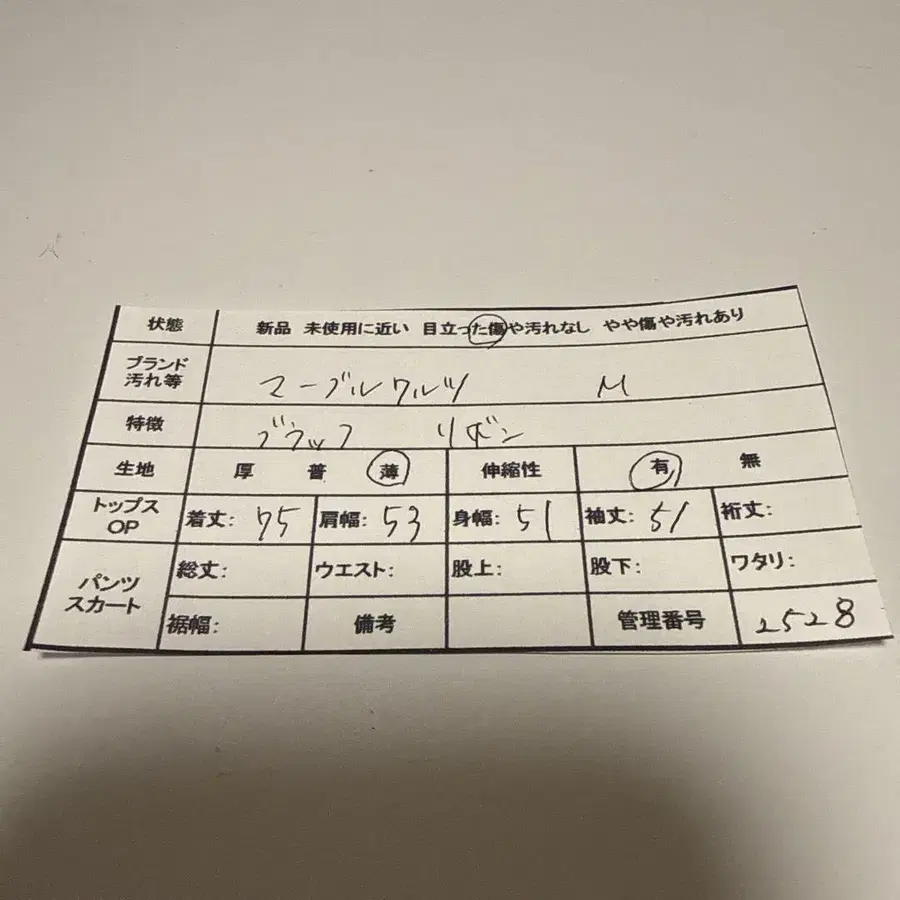 状態 新品 未使用に近い 目立った傷や汚れなし やや傷や汚れあり
ブランド
汚れ等 マーブルワルツ M
特徴 ブラック リボン
生地 厚 普 薄 伸縮性 有 無
トップス
OP 着丈: 75 肩幅: 53 身幅: 51 袖丈: 51 裄丈:
パンツ
スカート 総丈: ウエスト: 股上: 股下: ワタリ:
裾幅: 備考 管理番号 2528